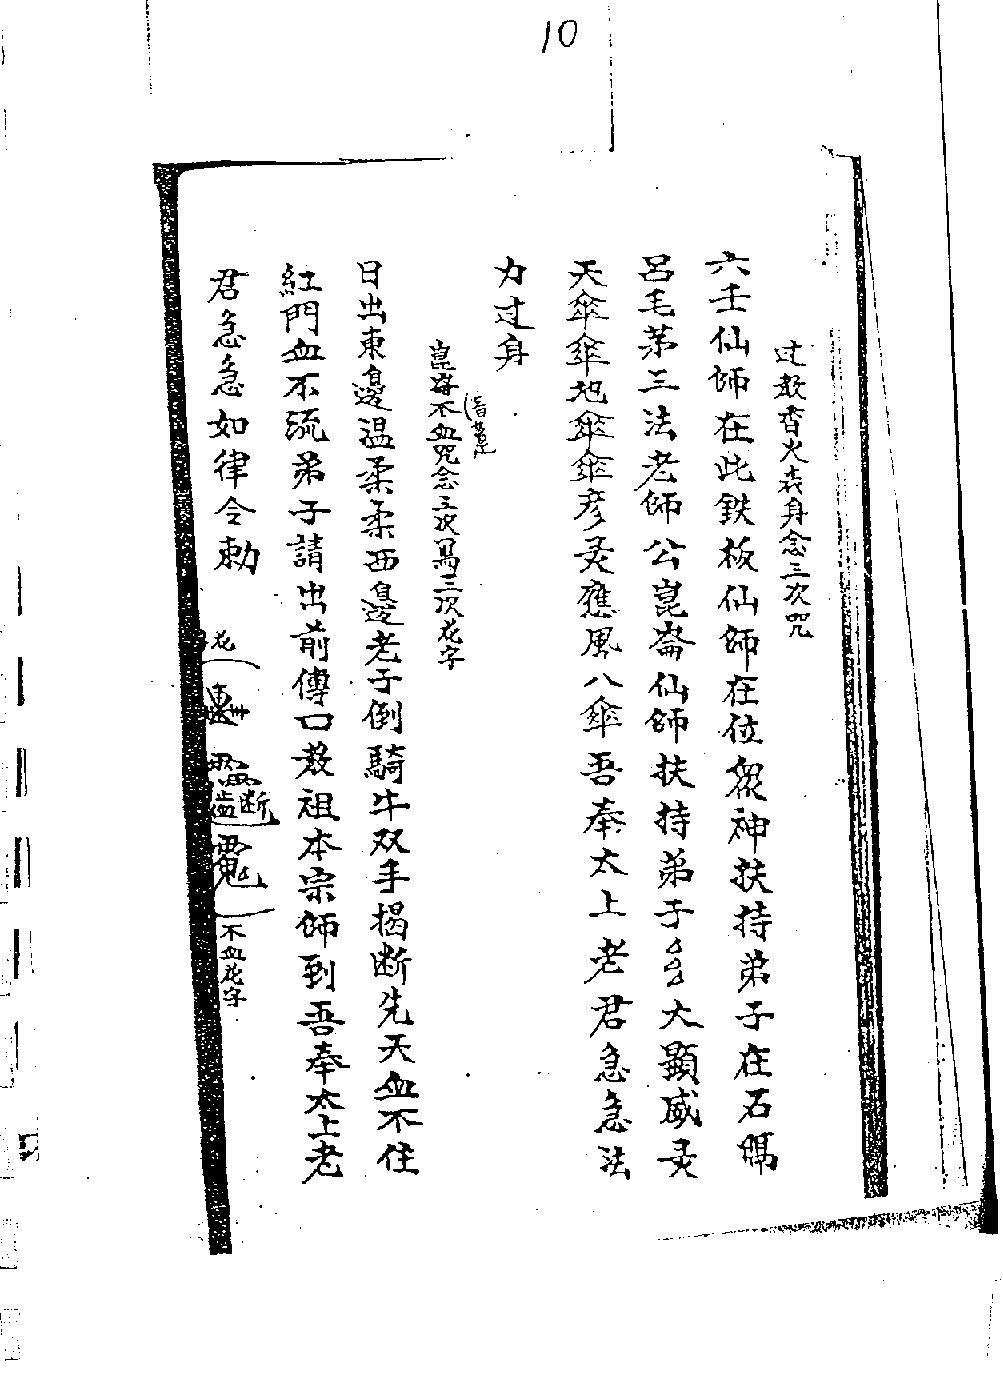 10
过教香火表身念三次咒
六壬仙師在此鉄板仙師在位衆神扶持弟子在石
呂毛茅三法老師公崑崙仙師扶持弟子大顯威灵
天傘傘地傘傘彦灵應風八傘吾奉太上老君急急法
力过身
不血咒念三次寫三次花字
日出東邊温柔柔西邊老子倒騎牛双手揭断先天血不住
紅門血不流弟子請出前傳口教祖本宗師到吾奉太上老
君急急如律令勅
花
不血花字